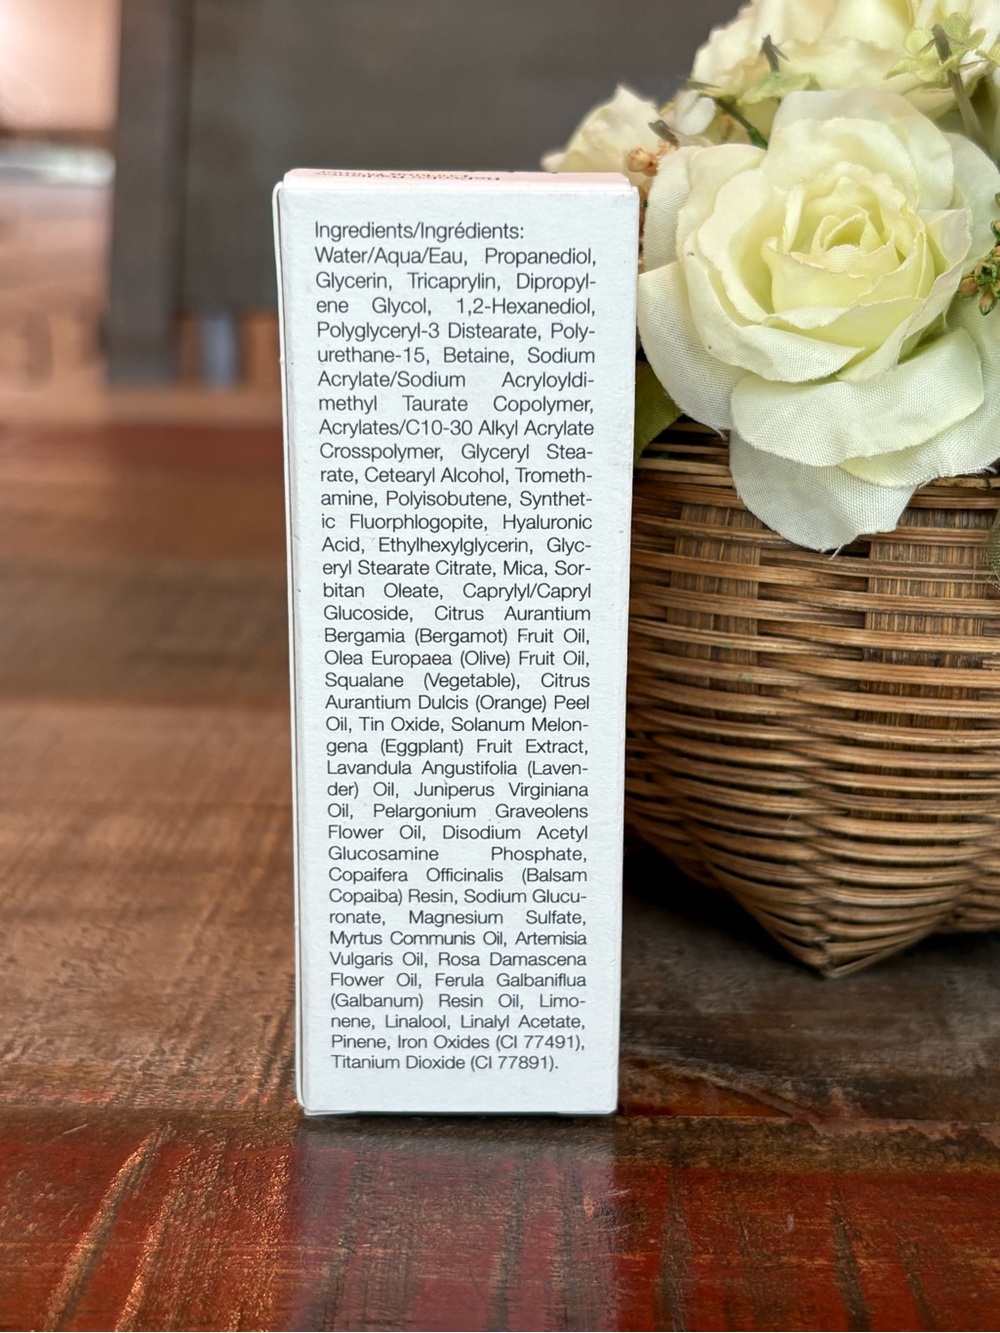 Ingredients/Ingrédients:
Water/Aqua/Eau, Propanediol,
Glycerin, Tricaprylin, Dipropyl-
ene Glycol, 1,2-Hexanediol,
Polyglyceryl-3 Distearate, Poly-
urethane-15, Betaine, Sodium
Acrylate/Sodium Acryloyldi-
methyl Taurate Copolymer,
Acrylates/C10-30 Alkyl Acrylate
Crosspolymer, Glyceryl Stea-
rate, Cetearyl Alcohol, Trometh-
amine, Polyisobutene, Synthet-
ic Fluorphlogopite, Hyaluronic
Acid, Ethylhexylglycerin, Glyc-
eryl Stearate Citrate, Mica, Sor-
bitan Oleate, Caprylyl/Capryl
Glucoside, Citrus Aurantium
Bergamia (Bergamot) Fruit Oil,
Olea Europaea (Olive) Fruit Oil,
Squalane (Vegetable), Citrus
Aurantium Dulcis (Orange) Peel
Oil, Tin Oxide, Solanum Melon-
gena (Eggplant) Fruit Extract,
Lavandula Angustifolia (Laven-
der) Oil, Juniperus Virginiana
Oil, Pelargonium Graveolens
Flower Oil, Disodium Acetyl
Glucosamine Phosphate,
Copaifera Officinalis (Balsam
Copaiba) Resin, Sodium Glucu-
ronate, Magnesium Sulfate,
Myrtus Communis Oil, Artemisia
Vulgaris Oil, Rosa Damascena
Flower Oil, Ferula Galbaniflua
(Galbanum) Resin Oil, Limo-
nene, Linalool, Linalyl Acetate,
Pinene, Iron Oxides (CI 77491),
Titanium Dioxide (CI 77891).